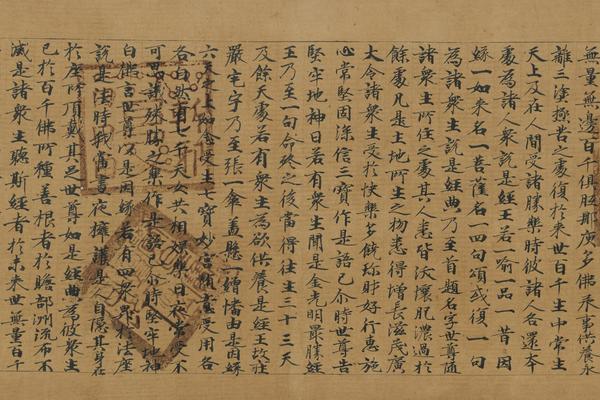 無量無邊百千俱胝那庾多佛承事供養永
離三塗極苦之處復於來世百千生中常生
天上及在人間受諸勝樂時彼諸人各還本
處為諸人衆說是經王若一喻一品一昔因
緣一如來名一菩薩名一四句頌或復一句
為諸衆生說是經典乃至首題名字世尊隨
諸衆生所住之處其人悉皆沃壤肥濃過於
餘處凡是土地所生之物悉得增長滋茂廣
大令諸衆生受於快樂多饒珍財好行惠施
心常堅固深信三寶作是語已尒時世尊告
堅牢地神曰若有衆生聞是金光明最勝經
王乃至一句命終之後當得往生三十三天
及餘天處若有衆生為欲供養是經王故莊
嚴宅宇乃至張一傘蓋懸一繒幡由是因緣
六天之上如念受生七寶妙宮隨意受用各
各自然有七千天女共相娛樂日夜常受不
可思議殊勝之樂作是語已尒時堅牢地神
白佛言世尊以是因緣若有四衆昇於法座
說是法時我當晝夜擁護是人自隱其身在
於座所頂戴其足世尊如是經典為彼衆生
已於百千佛所種善根者於贍部洲流布不
滅是諸衆生聽斯經者於未來世無量百千